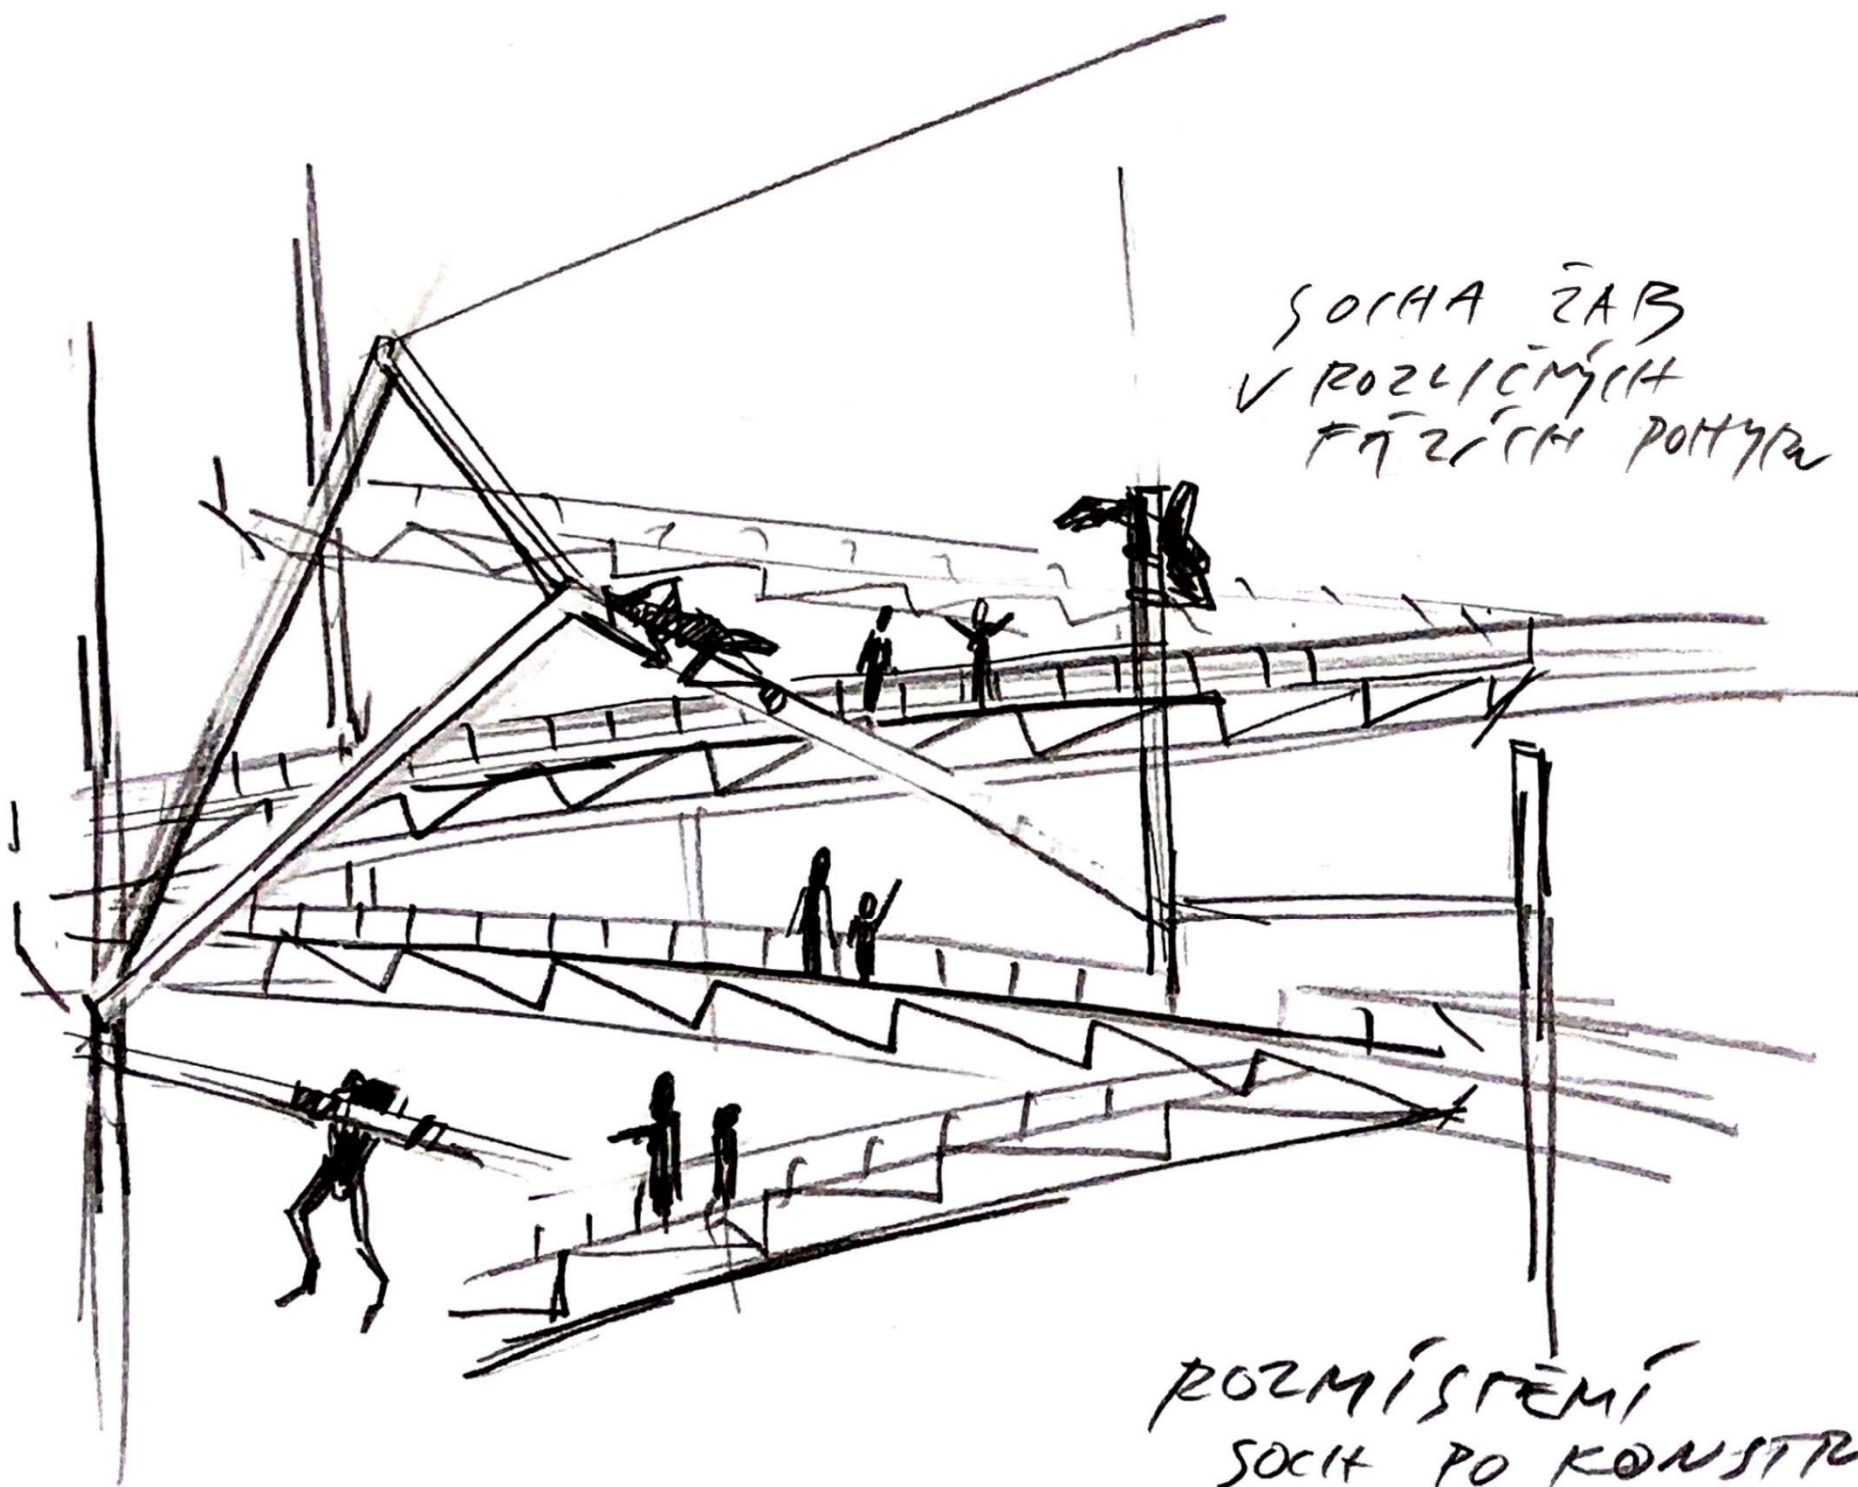 SOCHA ŽAB
V ROZLIČNÝCH
FÁZÍCH POHYBU
ROZMÍSTĚNÍ
SOCH PO KONSTR